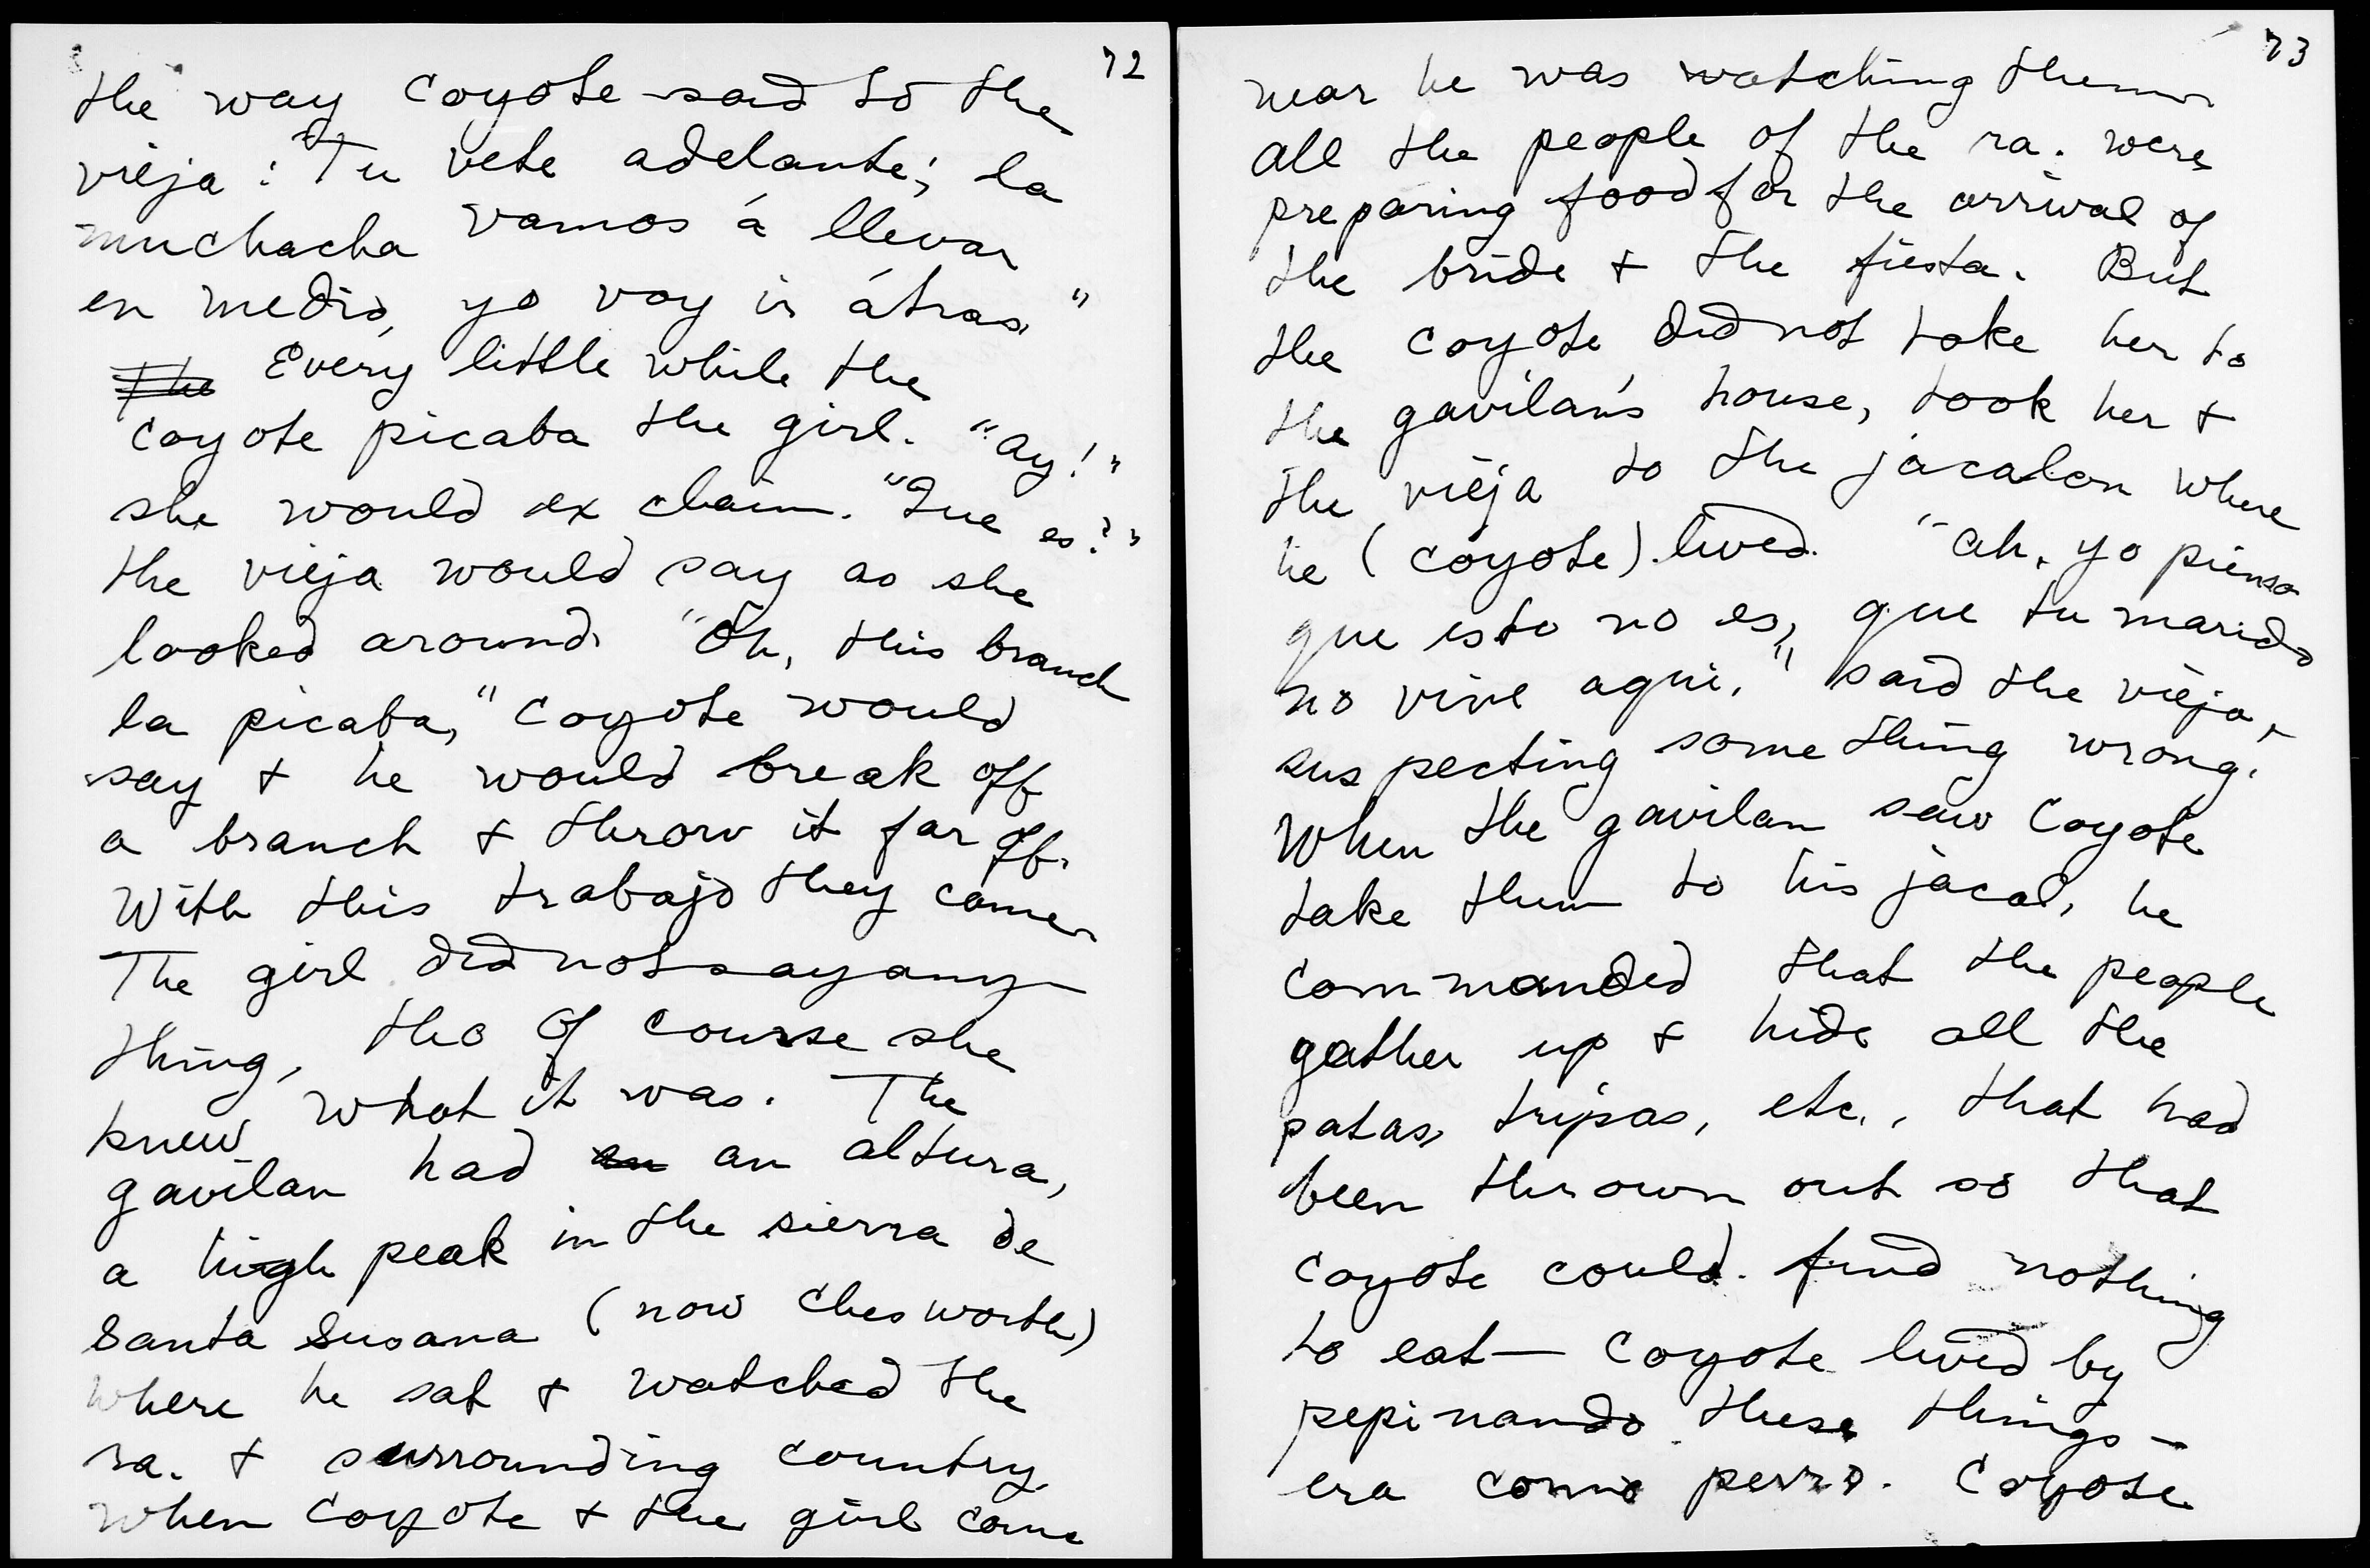 72
the way Coyote said to the
vieja: "Tu vete adelante; la
muchacha vamos á llevar
en medio, yo voy ir átras."
The Every little while the
Coyote picaba the girl. "Ay!"
she would exclaim. "Que es?"
the vieja would say as she
looked around. "Oh, this branch
la picaba," Coyote would
say & he would break off
a branch & throw it far off.
With this trabajo they came.
The girl did not say any-
thing, tho of course she
knew what it was. The
gavilan had an an altura,
a high peak in the sierra de
Santa Susana (now Chesworth)
where he sat & watched the
ra. & surrounding country.
When Coyote & the girl came
73
near he was watching them.
All the people of the ra. were
preparing food for the arrival of
the bride & the fiesta. But
the Coyote did not take her to
the gavilan's house, took her &
the vieja to the jacalon where
he (Coyote) lived. "Ah, yo pienso
que esto no es, que tu marido
no vive aqui," said the vieja,
suspecting something wrong.
When the gavilan saw Coyote
take them to his jacal, he
commanded that the people
gather up & hide all the
patas, tripas, etc., that had
been thrown out so that
Coyote could find nothing
to eat — Coyote lived by
pepinando these things —
era como perro. Coyote